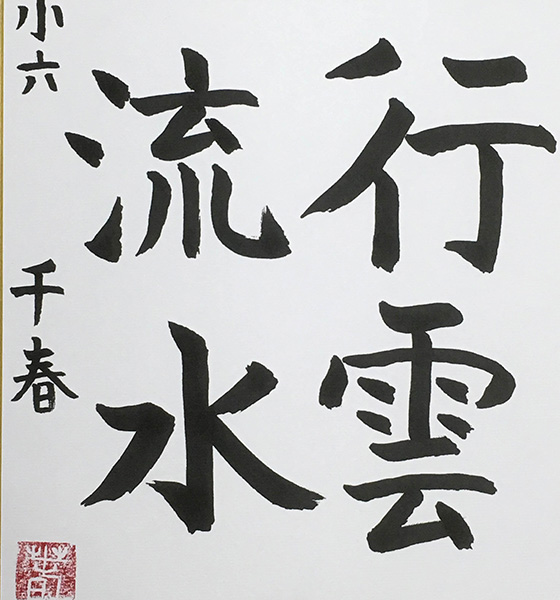 行雲
流水
小六 千春